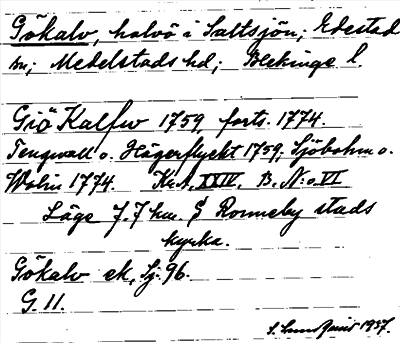 Gökalv, halvö i Saltsjön, Edestad
sn; Medelstads hd; Blekinge l.
Giö Kalfw 1759, forts. 1774.
Tengwall o. Hägerflyckt 1759, Sjöbohm o.
Wohn 1774. Kr.A. XXIV. B. N:o VI
Läge 7.7 km. S Ronneby stads
kyrka.
Gökalv ek, Sj. 96.
G. 11.
S. Lundquist 1937.